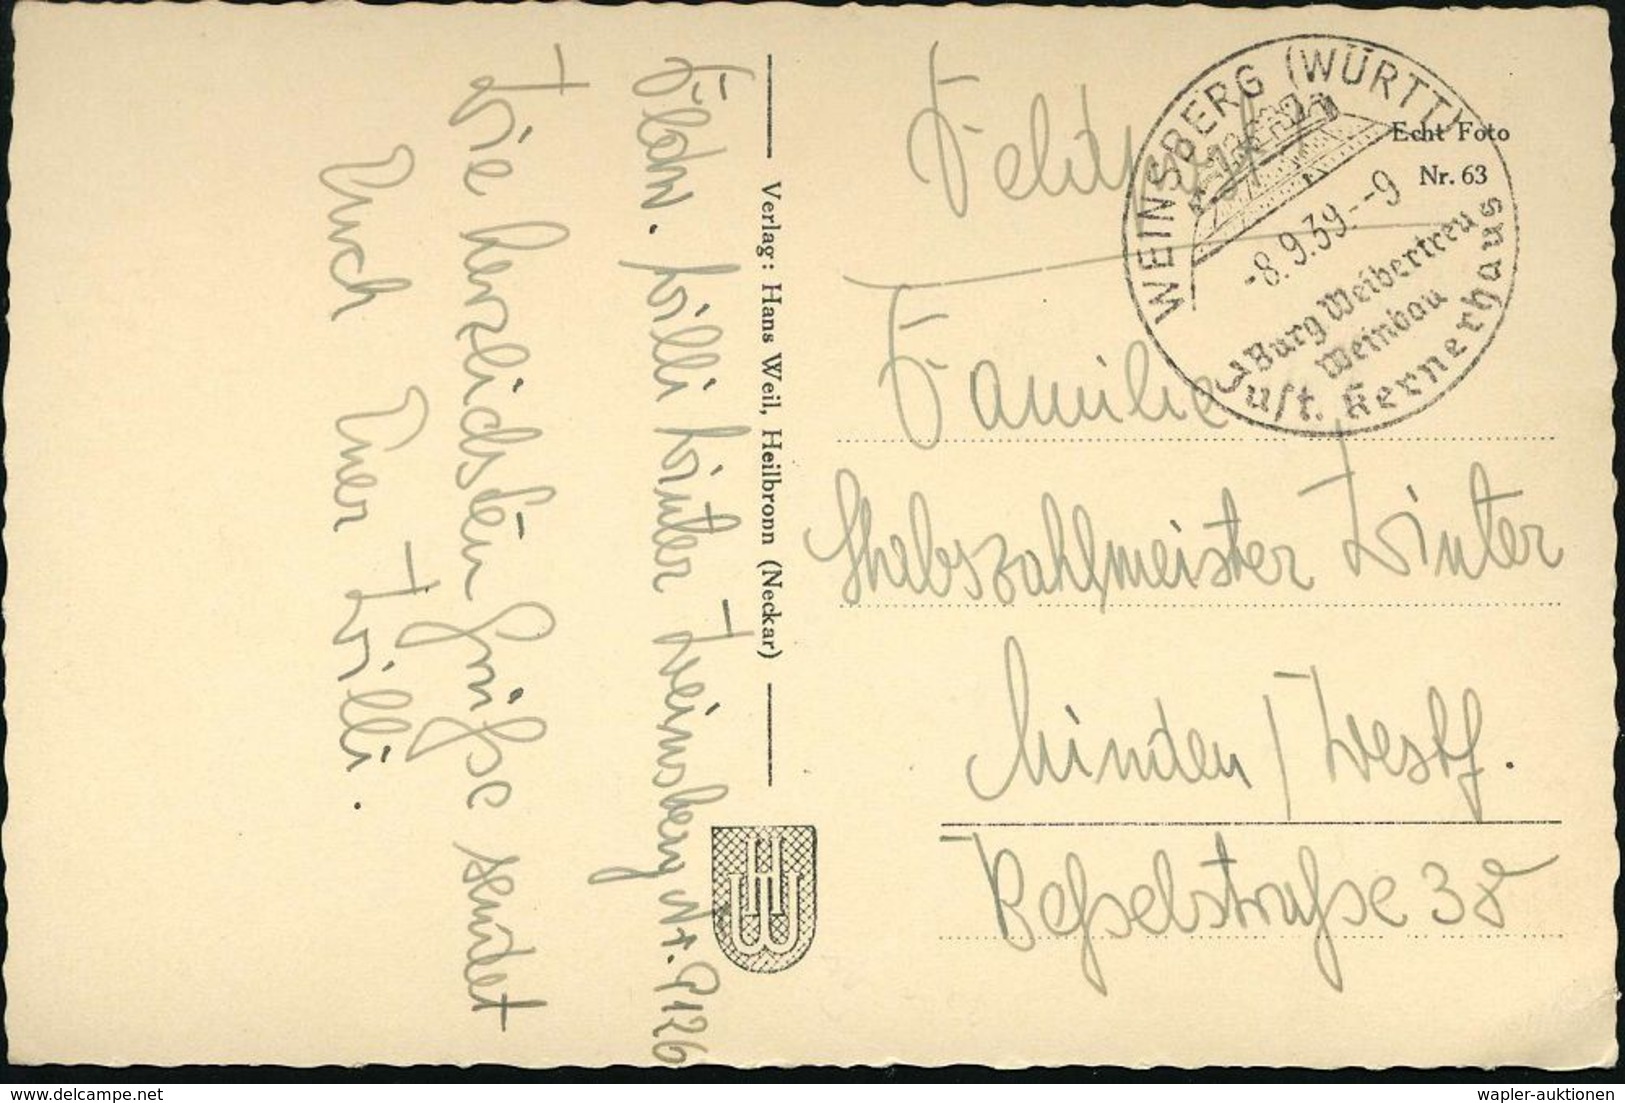 Feldpost
Familie
Stabszahlmeister Winter
Minden / Westf.
Besselstraße 38
WEINSBERG (WÜRTT)
-8.9.39.--9
Burg Weibertreu
Weinbau
Just. Kernerhaus
Echt Foto
Nr. 63
Verlag: Hans Weil, Heilbronn (Neckar)
HW
Willi Winter Weinsberg Nr. 9126
Die herzlichsten Grüße sendet
Euch Euer Willi.
wapler-auktionen